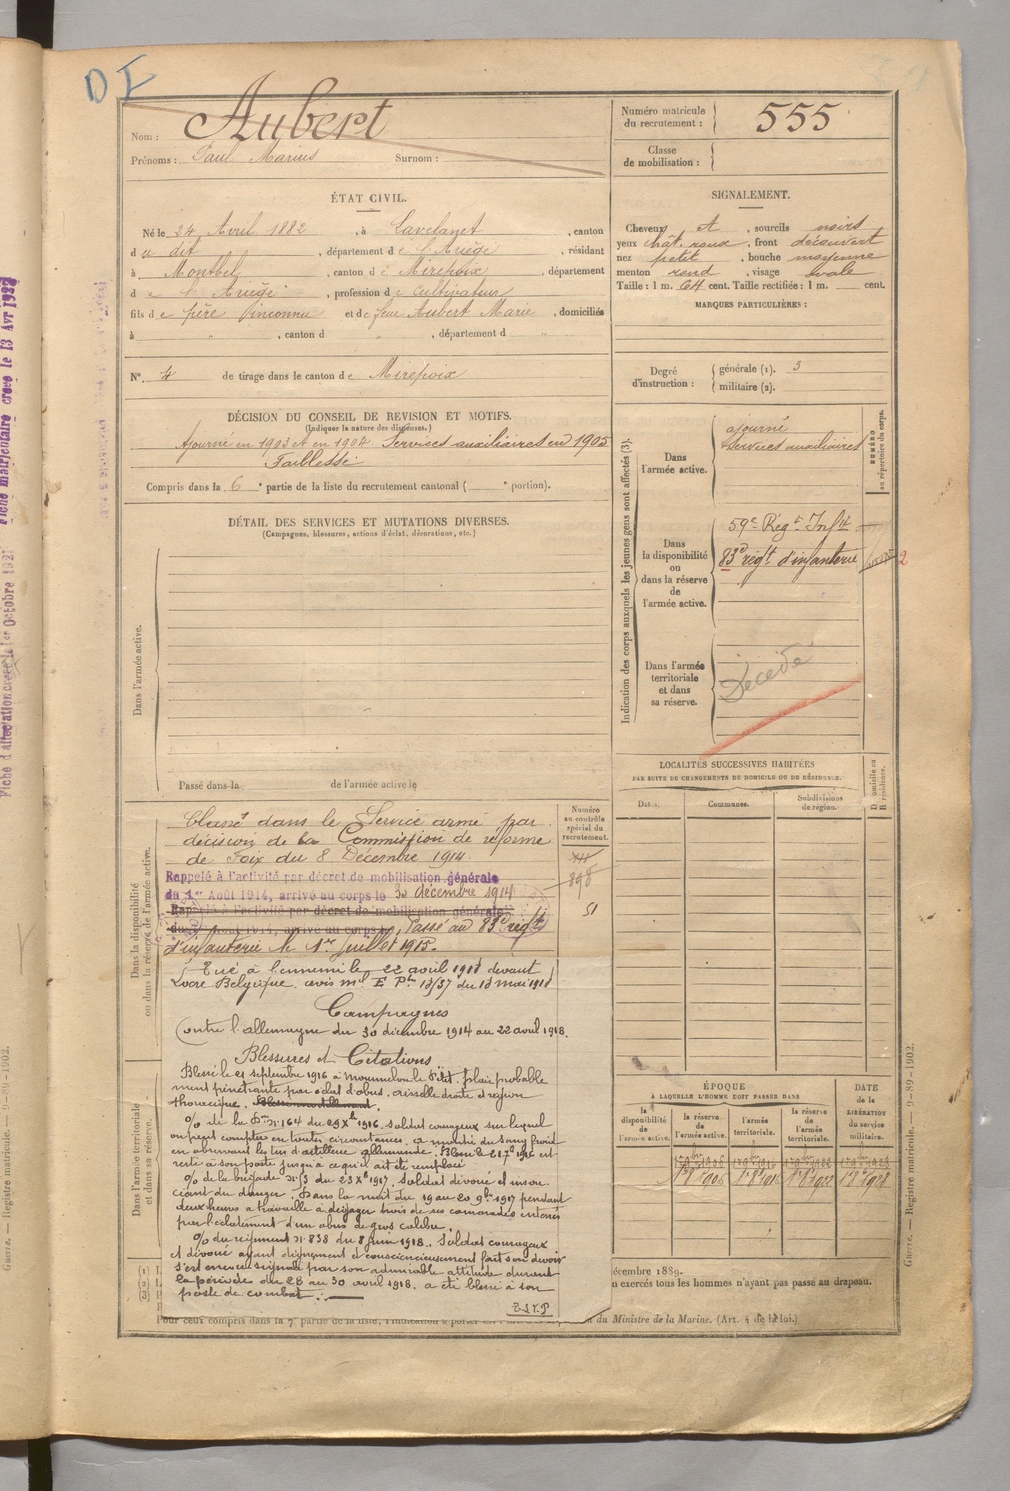 D I
Nom : Aubert
Prénoms : Paul Marius Surnom :
Numéro matricule du recrutement : 555
Classe de mobilisation :
ÉTAT CIVIL.
Né le 24 Avril 1882, à Lavelanet, canton
du dit, département de l'Ariège, résidant
à Montbel, canton de Mirepoix, département
de l'Ariège, profession de Cultivateur
fils de père inconnu et de feue Aubert Marie, domiciliés
à " , canton d " , département d "
N° 4 de tirage dans le canton de Mirepoix
SIGNALEMENT.
Cheveux et , sourcils noirs
yeux chât. roux , front découvert
nez petit , bouche moyenne
menton rond , visage ovale
Taille : 1 m. 64 cent. Taille rectifiée : 1 m. cent.
MARQUES PARTICULIÈRES :
Degré d'instruction :
générale (1). 3
militaire (2).
DÉCISION DU CONSEIL DE REVISION ET MOTIFS.
(Indiquer la nature des dispenses.)
Ajourné en 1903 et en 1904. Services auxiliaires en 1905
Faiblesse
Compris dans la 6e partie de la liste du recrutement cantonal ( e portion).
DÉTAIL DES SERVICES ET MUTATIONS DIVERSES.
(Campagnes, blessures, actions d'éclat, décorations, etc.)
Dans l'armée active.
Passé dans la de l'armée active le
Indication des corps auxquels les jeunes gens sont affectés (3).
NUMÉRO au répertoire du corps.
Dans l'armée active.
ajourné
Services auxiliaires
Dans la disponibilité ou dans la réserve de l'armée active.
59e Régt Inf
83e régt d'infanterie
2
Dans l'armée territoriale et dans sa réserve.
Décédé
LOCALITÉS SUCCESSIVES HABITÉES
PAR SUITE DE CHANGEMENTS DE DOMICILE OU DE RÉSIDENCE.
Dates. Communes. Subdivisions de région. Domicile ou résidence.
Dans la disponibilité ou dans la réserve de l'armée active.
Numéro au contrôle spécial du recrutement.
898
51
Classé dans le Service armé par
décision de la Commission de réforme
de Foix du 8 Décembre 1914.
Rappelé à l'activité par décret de mobilisation générale
du 1er Août 1914, arrivé au corps le 30 décembre 1914
Rappelé à l'activité par décret de mobilisation générale
du Août 1914, arrivé au corps Passé au 83e régt
d'infanterie le 1er Juillet 1915.
Tué à l'ennemi le 22 avril 1918 devant
Locre Belgique. avis mel E Pn 13/37 du 13 mai 1918
Campagnes
Contre l'allemagne du 30 décembre 1914 au 22 avril 1918.
Blessures et Citations
Blessé le 21 septembre 1916 à Mourmelon le Petit. plaie probable
ment pénétrante par éclat d'obus. aisselle droite et région
thoracique. Blessé mortellement.
% de la Don n: 164 du 29 Xbre 1916. soldat courageux sur lequel
on peut compter en toutes circonstances, a montré du sang froid
en observant les tirs d'artillerie allemande. Blessé le 21 7bre 1916 est
resté à son poste jusqu'à ce qu'il ait été remplacé
% de la brigade n: du 23 Xbre 1917. Soldat dévoué et insou
ciant du danger. Dans la nuit du 19 au 20 9bre 1917 pendant
deux heures a travaillé à dégager trois de ses camarades enterrés
par l'éclatement d'un obus de gros calibre.
% du régiment n: 838 du 8 juin 1918. Soldat courageux
et dévoué ayant dignement et consciencieusement fait son devoir
s'est encore signalé par son admirable attitude durant
la période du 28 au 30 avril 1918. a été blessé à son
poste de combat. :
T.S.V.P
Dans l'armée territoriale et dans sa réserve.
ÉPOQUE
À LAQUELLE L'HOMME DOIT PASSER DANS
DATE de la LIBÉRATION du service militaire.
la disponibilité de l'armée active. la réserve de l'armée active. l'armée territoriale. la réserve de l'armée territoriale.
(1) I
(2) I
(3)
écembre 1889.
n exercés tous les hommes n'ayant pas passé au drapeau.
Pour ceux compris dans la 7e partie de la liste, l'indication à porter
du Ministre de la Marine. (Art. 4 de la loi.)
Guerre. — Registre matricule. — 9-89-1902.
Guerre. — Registre matricule. — 9-89-1902.
Fiche matriculaire créée le 13 Avr
Fiche d'affectation créée le 1er Octobre